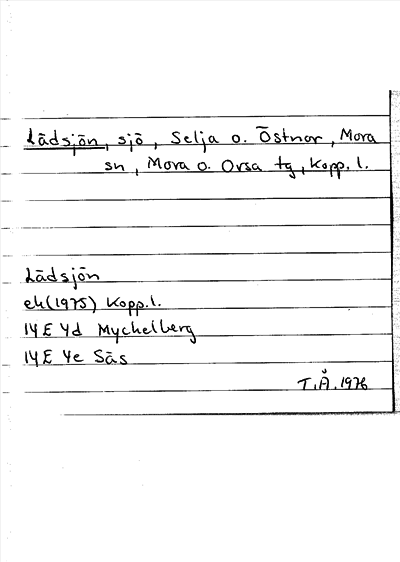 Lädsjön, sjö, Selja o. Östnor, Mora
sn, Mora o. Orsa tg, Kopp. l.
Lädsjön
ek (1975) Kopp. l.
14E 4d Myckelberg
14E 4e Säs
T.Å. 1976